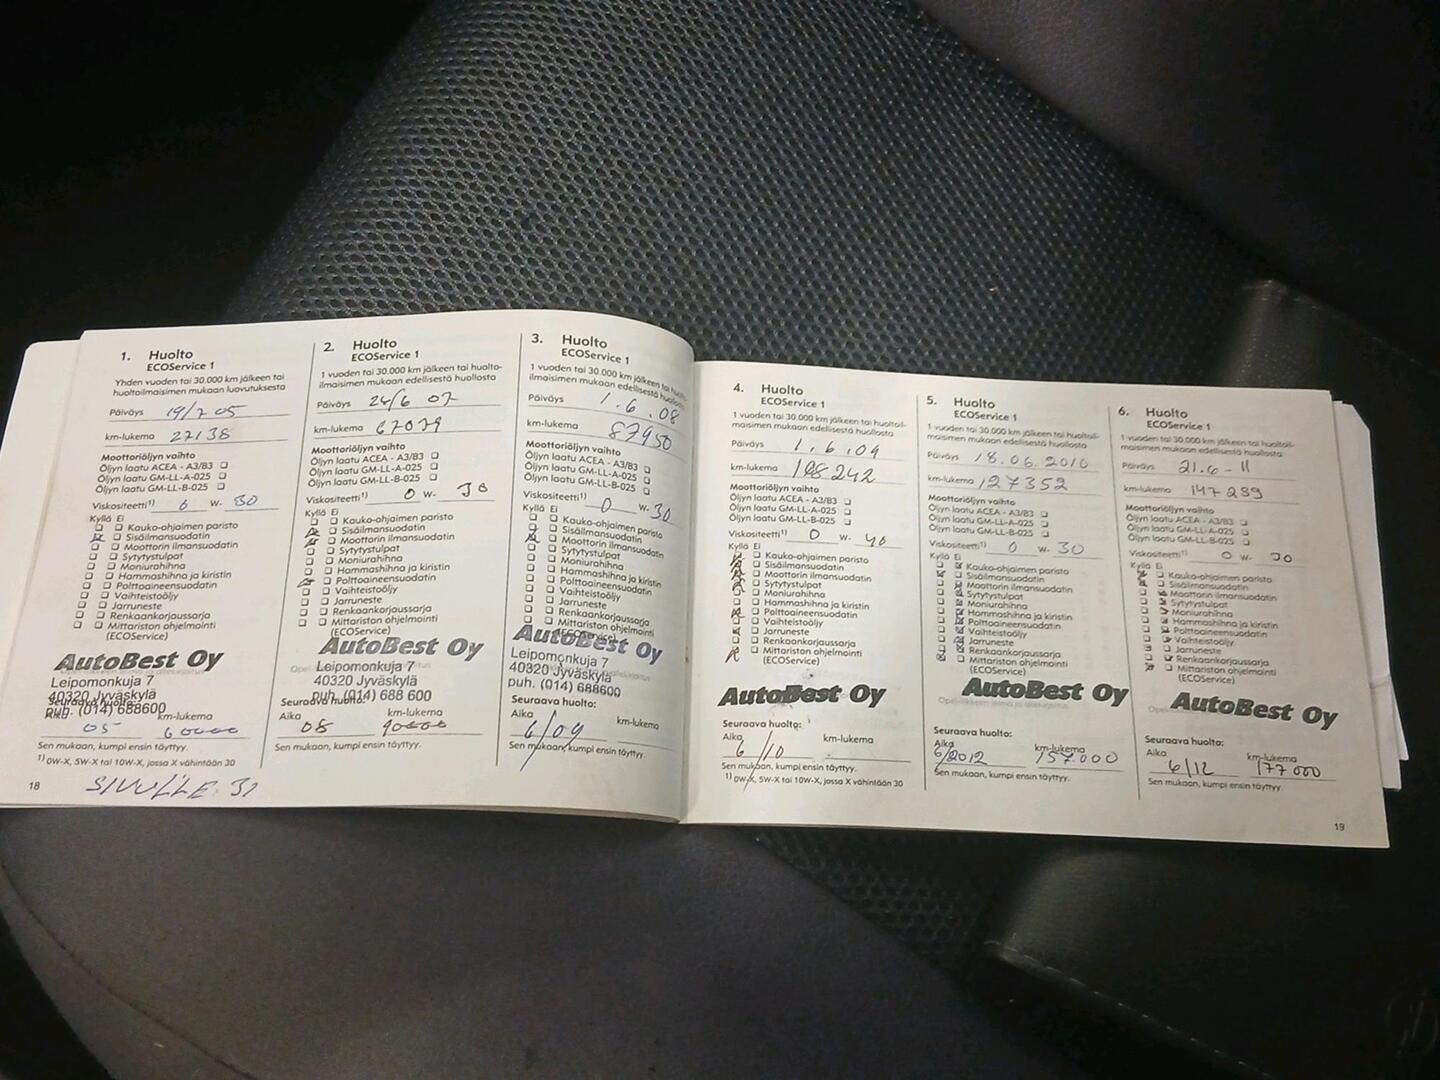 1. Huolto
ECOService 1
Yhden vuoden tai 30.000 km jälkeen tai
huoltoilmaisimen mukaan luovutuksesta
Päiväys 19/7 05
km-lukema 27138
Moottoriöljyn vaihto
Öljyn laatu ACEA - A3/B3
Öljyn laatu GM-LL-A-025
Öljyn laatu GM-LL-B-025
Viskositeetti1) 0 W- 30
Kyllä Ei
Kauko-ohjaimen paristo
Sisäilmansuodatin
Moottorin ilmansuodatin
Sytytystulpat
Moniurahihna
Hammashihna ja kiristin
Polttoaineensuodatin
Vaihteistoöljy
Jarruneste
Renkaankorjaussarja
Mittariston ohjelmointi
(ECOService)
AutoBest Oy
Leipomonkuja 7
40320 Jyväskylä
puh. (014) 688600
Seuraava huolto:
Aika km-lukema
05 60000
Sen mukaan, kumpi ensin täyttyy.
1) 0W-X, 5W-X tai 10W-X, jossa X vähintään 30
18
SIVULLE 31
2. Huolto
ECOService 1
1 vuoden tai 30.000 km jälkeen tai huolto-
ilmaisimen mukaan edellisestä huollosta
Päiväys 24/6 07
km-lukema 67079
Moottoriöljyn vaihto
Öljyn laatu ACEA - A3/B3
Öljyn laatu GM-LL-A-025
Öljyn laatu GM-LL-B-025
Viskositeetti1) 0 W- 30
Kyllä Ei
Kauko-ohjaimen paristo
Sisäilmansuodatin
Moottorin ilmansuodatin
Sytytystulpat
Moniurahihna
Hammashihna ja kiristin
Polttoaineensuodatin
Vaihteistoöljy
Jarruneste
Renkaankorjaussarja
Mittariston ohjelmointi
(ECOService)
AutoBest Oy
Leipomonkuja 7
40320 Jyväskylä
puh. (014) 688 600
Seuraava huolto:
Aika km-lukema
08 90000
Sen mukaan, kumpi ensin täyttyy.
3. Huolto
ECOService 1
1 vuoden tai 30.000 km jälkeen tai
ilmaisimen mukaan edellisestä huollosta
Päiväys 1.6.08
km-lukema 87950
Moottoriöljyn vaihto
Öljyn laatu ACEA - A3/B3
Öljyn laatu GM-LL-A-025
Öljyn laatu GM-LL-B-025
Viskositeetti1) 0 W- 30
Kyllä Ei
Kauko-ohjaimen paristo
Sisäilmansuodatin
Moottorin ilmansuodatin
Sytytystulpat
Moniurahihna
Hammashihna ja kiristin
Polttoaineensuodatin
Vaihteistoöljy
Jarruneste
Renkaankorjaussarja
Mittariston ohjelmointi
AutoBest Oy
Leipomonkuja 7
40320 Jyväskylä
puh. (014) 688600
Seuraava huolto:
Aika km-lukema
6/09
Sen mukaan, kumpi ensin täyttyy.
4. Huolto
ECOService 1
1 vuoden tai 30.000 km jälkeen tai huoltoil-
maisimen mukaan edellisestä huollosta
Päiväys 1.6.09
km-lukema 108242
Moottoriöljyn vaihto
Öljyn laatu ACEA - A3/B3
Öljyn laatu GM-LL-A-025
Öljyn laatu GM-LL-B-025
Viskositeetti1) 0 W- 40
Kyllä Ei
Kauko-ohjaimen paristo
Sisäilmansuodatin
Moottorin ilmansuodatin
Sytytystulpat
Moniurahihna
Hammashihna ja kiristin
Polttoaineensuodatin
Vaihteistoöljy
Jarruneste
Renkaankorjaussarja
Mittariston ohjelmointi
(ECOService)
AutoBest Oy
Seuraava huolto:
Aika km-lukema
6/10
Sen mukaan, kumpi ensin täyttyy.
1) 0W-X, 5W-X tai 10W-X, jossa X vähintään 30
5. Huolto
ECOService 1
1 vuoden tai 30.000 km jälkeen tai huoltoil-
maisimen mukaan edellisestä huollosta
Päiväys 18.06.2010
km-lukema 127352
Moottoriöljyn vaihto
Öljyn laatu ACEA - A3/B3
Öljyn laatu GM-LL-A-025
Öljyn laatu GM-LL-B-025
Viskositeetti1) 0 W- 30
Kyllä Ei
Kauko-ohjaimen paristo
Sisäilmansuodatin
Moottorin ilmansuodatin
Sytytystulpat
Moniurahihna
Hammashihna ja kiristin
Polttoaineensuodatin
Vaihteistoöljy
Jarruneste
Renkaankorjaussarja
Mittariston ohjelmointi
(ECOService)
AutoBest Oy
Seuraava huolto:
Aika km-lukema
6/2012 157.000
Sen mukaan, kumpi ensin täyttyy.
6. Huolto
ECOService 1
1 vuoden tai 30.000 km jälkeen tai huoltoil-
maisimen mukaan edellisestä huollosta
Päiväys 21.6-11
km-lukema 147289
Moottoriöljyn vaihto
Öljyn laatu ACEA - A3/B3
Öljyn laatu GM-LL-A-025
Öljyn laatu GM-LL-B-025
Viskositeetti1) 0 W- 30
Kyllä Ei
Kauko-ohjaimen paristo
Sisäilmansuodatin
Moottorin ilmansuodatin
Sytytystulpat
Moniurahihna
Hammashihna ja kiristin
Polttoaineensuodatin
Vaihteistoöljy
Jarruneste
Renkaankorjaussarja
Mittariston ohjelmointi
(ECOService)
AutoBest Oy
Seuraava huolto:
Aika km-lukema
6/12 177000
Sen mukaan, kumpi ensin täyttyy.
19